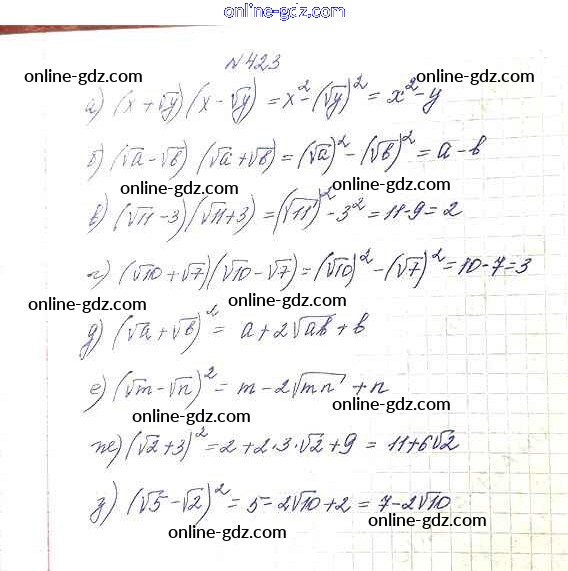 online-gdz.com
№423
online-gdz.com online-gdz.com
а) (x + √y)(x - √y) = x² - (√y)² = x² - y
online-gdz.com
б) (√a - √b)(√a + √b) = (√a)² - (√b)² = a - b
online-gdz.com online-gdz.com
в) (√11 - 3)(√11 + 3) = (√11)² - 3² = 11 - 9 = 2
online-gdz.com
г) (√10 + √7)(√10 - √7) = (√10)² - (√7)² = 10 - 7 = 3
online-gdz.com online-gdz.com
д) (√a + √b)² = a + 2√ab + b
online-gdz.com
е) (√m - √n)² = m - 2√mn + n
online-gdz.com online-gdz.com
ж) (√2 + 3)² = 2 + 2·3·√2 + 9 = 11 + 6√2
online-gdz.com
з) (√5 - √2)² = 5 - 2√10 + 2 = 7 - 2√10
online-gdz.com online-gdz.com